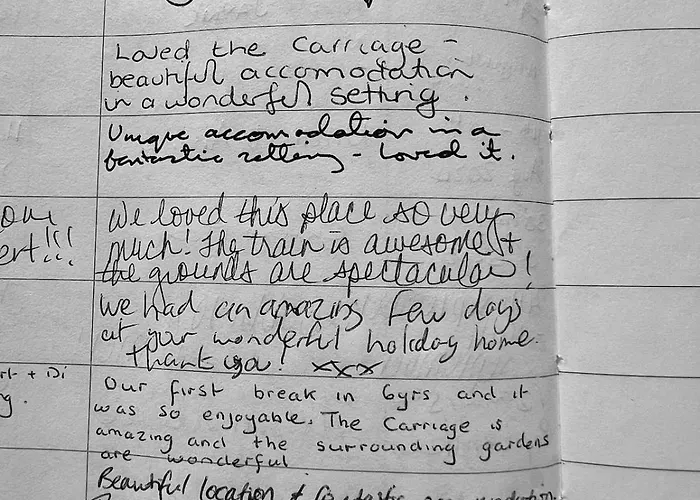 Loved the Carriage -
beautiful accomodation
in a wonderful setting.
Unique accomodation in a
fantastic setting - Loved it.
We loved this place so very
much! The train is awesome &
the grounds are spectacular!
We had an amazing few days
at your wonderful holiday home.
Thank you! xxx
ert!!!
+ Di
Our first break in 6yrs and it
was so enjoyable. The Carriage is
amazing and the surrounding gardens
are wonderful
Beautiful location & fantastic